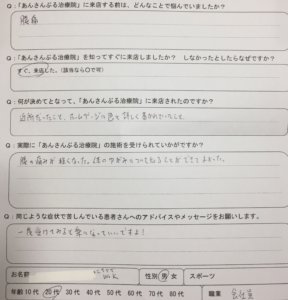 Q:「あんさんぶる治療院」に来店する前は、どんなことで悩んでいましたか?
腰痛
Q:「あんさんぶる治療院」を知ってすぐに来店しましたか? しなかったとしたらなぜですか?
すぐ、来店した。(該当なら○で可)
Q:何が決めてとなって、「あんさんぶる治療院」に来店されたのですか?
近所だったこと、ホームページに色々詳しく書かれていたこと。
Q:実際に「あんさんぶる治療院」の施術を受けられていかがですか?
腰の痛みが軽くなった。体のゆがみについても知ることができてよかった。
Q:同じような症状で苦しんでいる患者さんへのアドバイスやメッセージをお願いします。
一度受けてみると楽になっていいですよ!
お名前 イニシャル 性別 男 女 スポーツ
年齢 10代 20代 30代 40代 50代 60代 70代 80代 職業 会社員